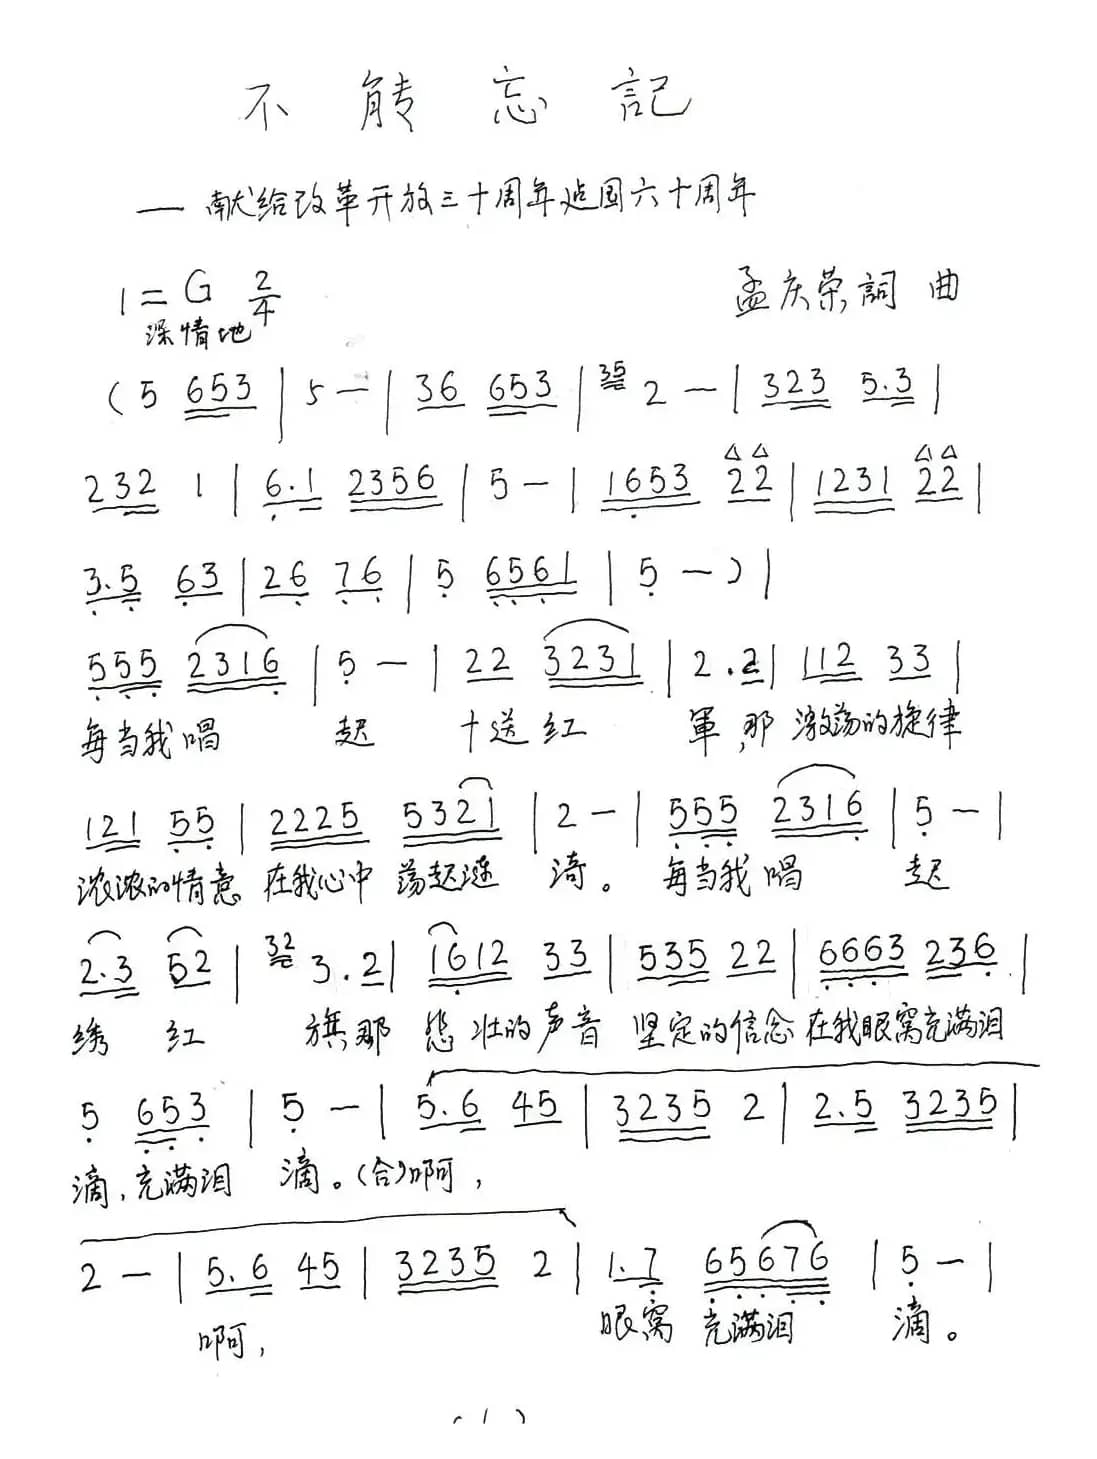 不能忘記
— 献给改革开放三十周年建国六十周年
1=G 2/4
孟庆荣詞 曲
深情地
(5 653 | 5 — | 36 653 | 35 2 — | 323 5.3 |
232 1 | 6.1 2356 | 5 — | 1653 22 | 1231 22 |
3.5 63 | 26 76 | 5 6561 | 5 — ) |
555 2316 | 5 — | 22 3231 | 2.2 | 112 33 |
每当我唱 起 十送红 軍,那 激荡的旋律
121 55 | 2225 5321 | 2 — | 555 2316 | 5 — |
浓浓的情意 在我心中 荡起涟 漪。 每当我唱 起
2.3 52 | 32 3.2 | 1612 33 | 535 22 | 6663 236 |
绣 红 旗那 悲壮的声音 坚定的信念 在我眼窝充满泪
5 653 | 5 — | 5.6 45 | 3235 2 | 2.5 3235 |
滴,充满泪 滴。(合)啊,
2 — | 5.6 45 | 3235 2 | 1.7 65676 | 5 — |
啊, 眼窝 充满泪 滴。
(1)